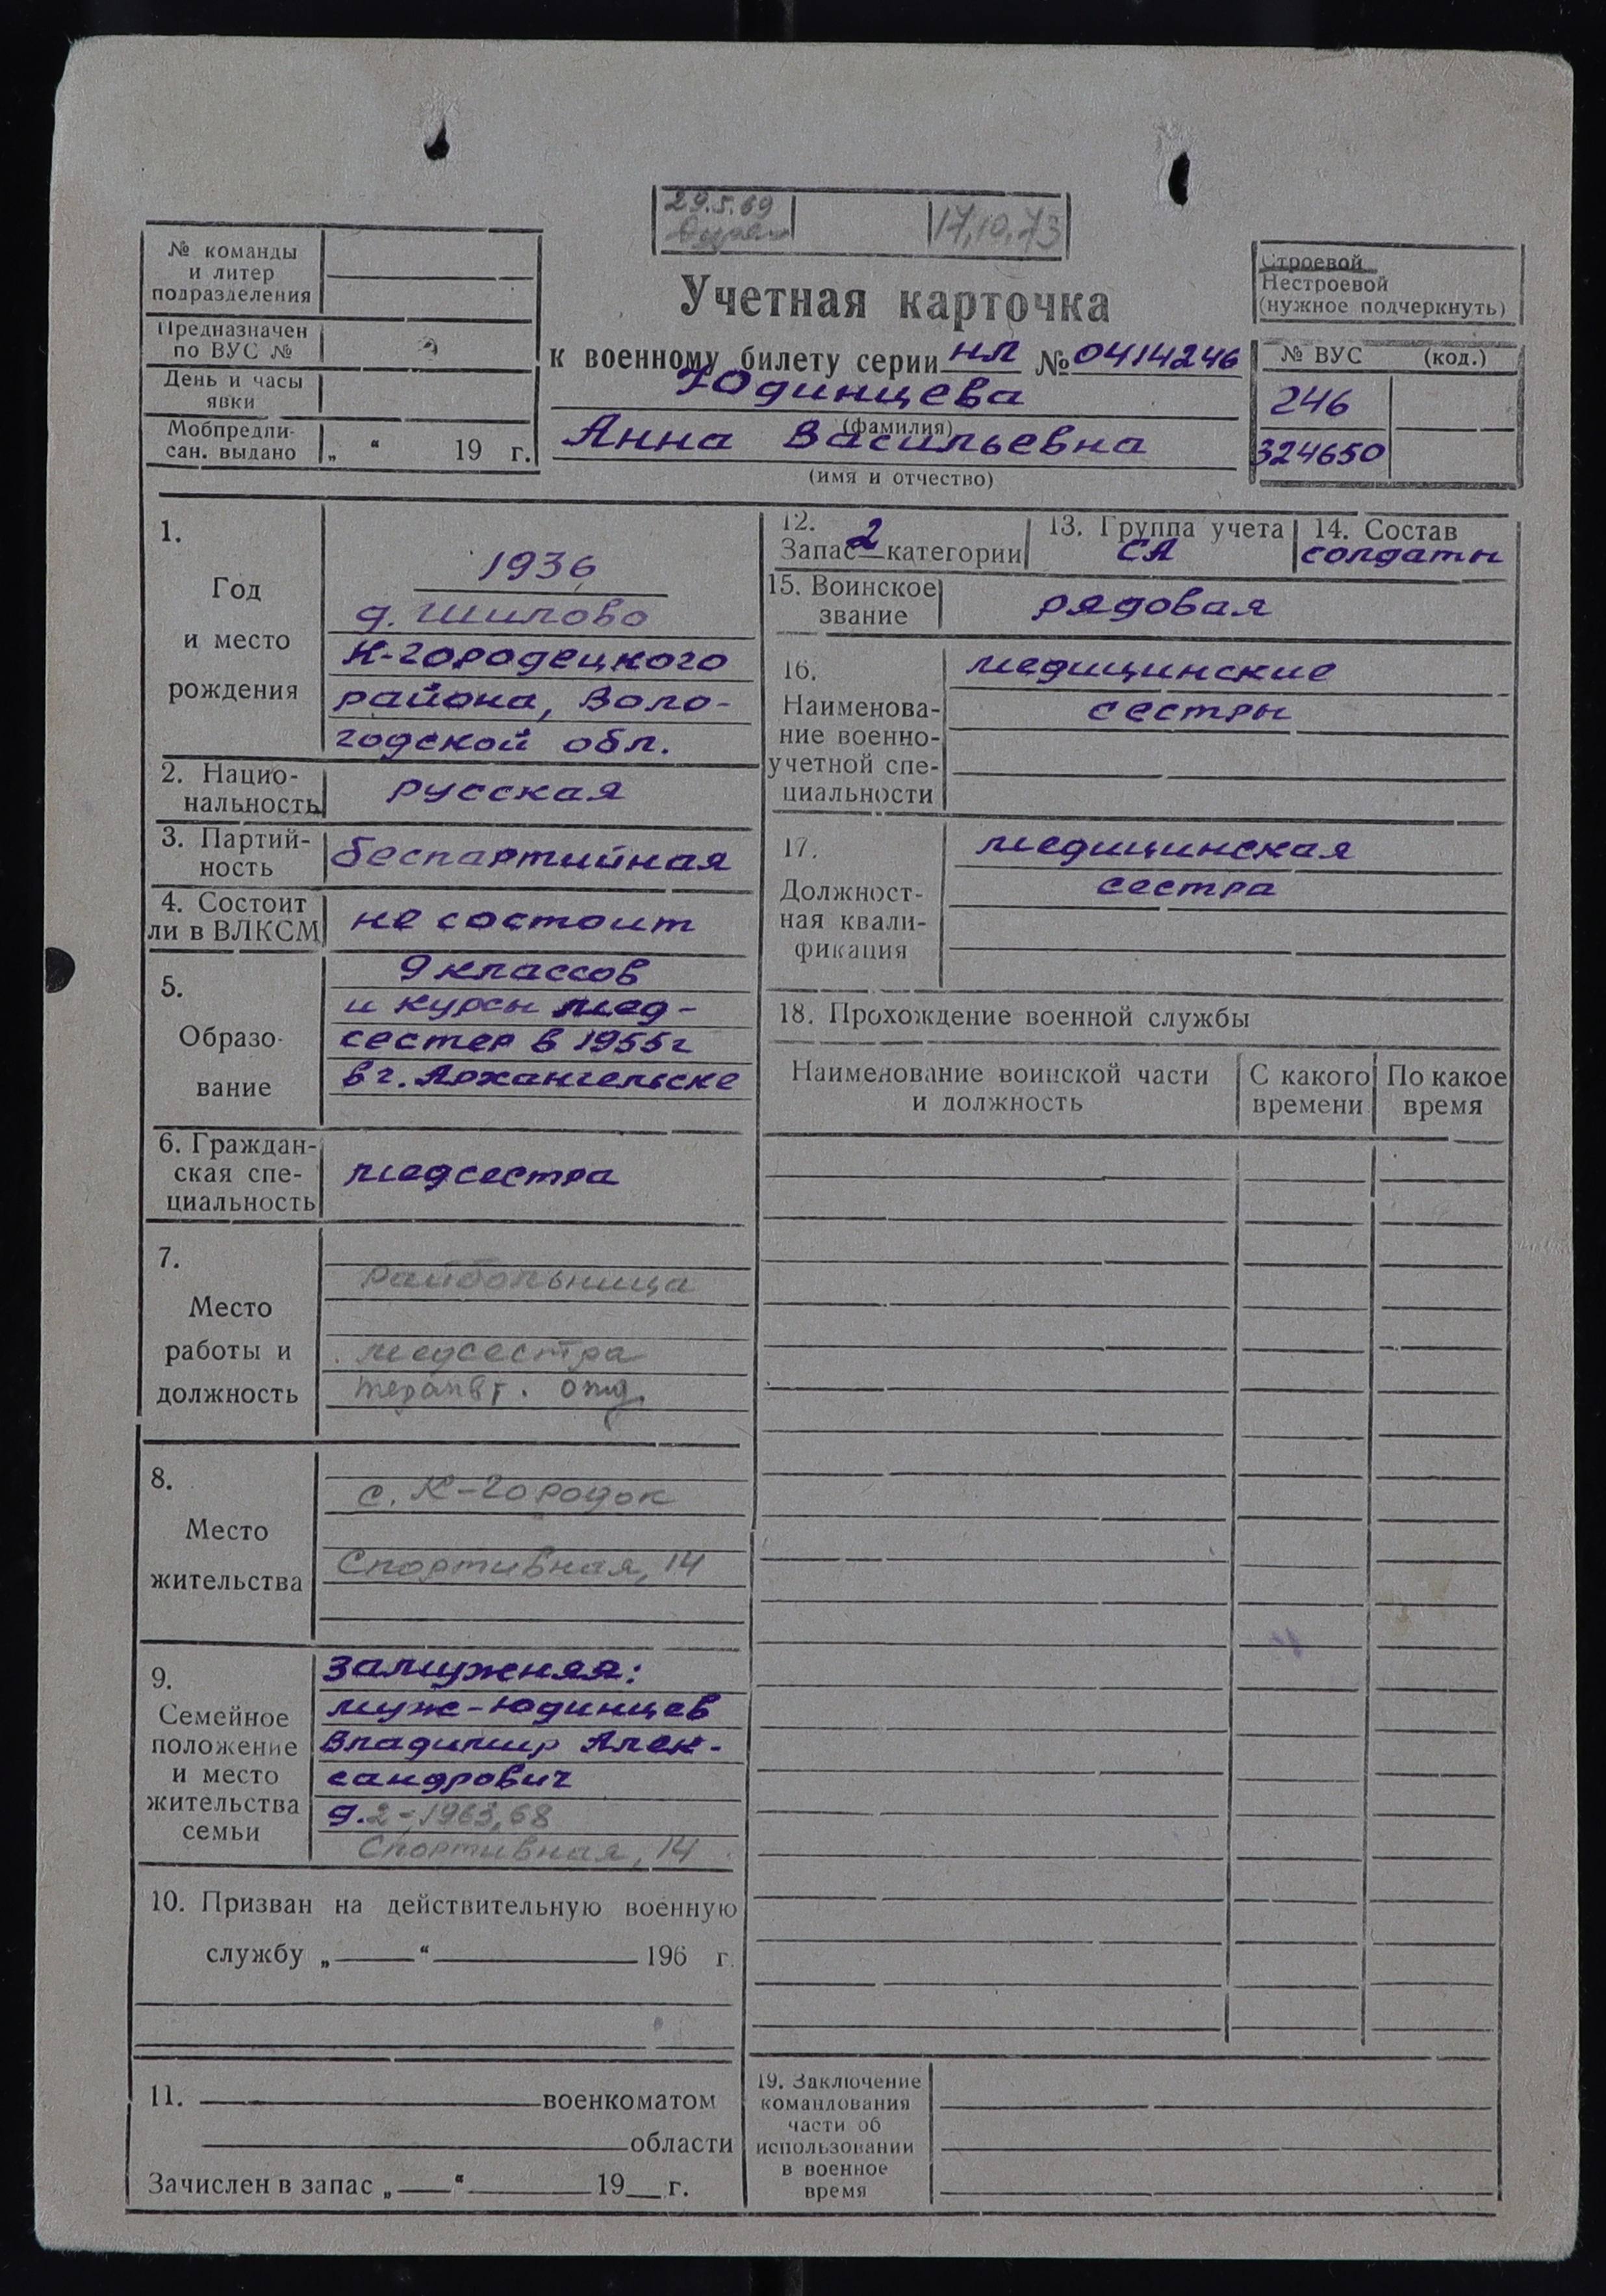 29.5.69
17,10,73
№ команды
и литер
подразделения
Предназначен
по ВУС №
День и часы
явки
Мобпредпи-
сан. выдано „ “ 19 г.
Учетная карточка
к военному билету серии нл № 0414246
Юдинцева
(фамилия)
Анна Васильевна
(имя и отчество)
Строевой
Нестроевой
(нужное подчеркнуть)
№ ВУС (код.)
246
324650
1.
Год
и место
рождения
1936
д. Шилово
К-городецкого
района, Воло-
годской обл.
2. Нацио-
нальность
русская
3. Партий-
ность
беспартийная
4. Состоит
ли в ВЛКСМ
не состоит
5.
Образо-
вание
9 классов
и курсы мед-
сестер в 1955г
в г. Архангельске
6. Граждан-
ская спе-
циальность
медсестра
7.
Место
работы и
должность
райбольница
медсестра
терапевт. отд.
8.
Место
жительства
с. К-городок
Спортивная, 14
9.
Семейное
положение
и место
жительства
семьи
замужняя:
муж-Юдинцев
Владимир Алек-
сандрович
д. 2-1963, 68
Спортивная, 14
10. Призван на действительную военную
службу „ “ 196 г.
11. военкоматом
области
Зачислен в запас „ “ 19 г.
12.
Запас 2 категории
13. Группа учета
СА
14. Состав
солдаты
15. Воинское
звание
рядовая
16.
Наименова-
ние военно-
учетной спе-
циальности
медицинские
сестры
17.
Должност-
ная квали-
фикация
медицинская
сестра
18. Прохождение военной службы
Наименование воинской части
и должность
С какого
времени
По какое
время
19. Заключение
командования
части об
использовании
в военное
время